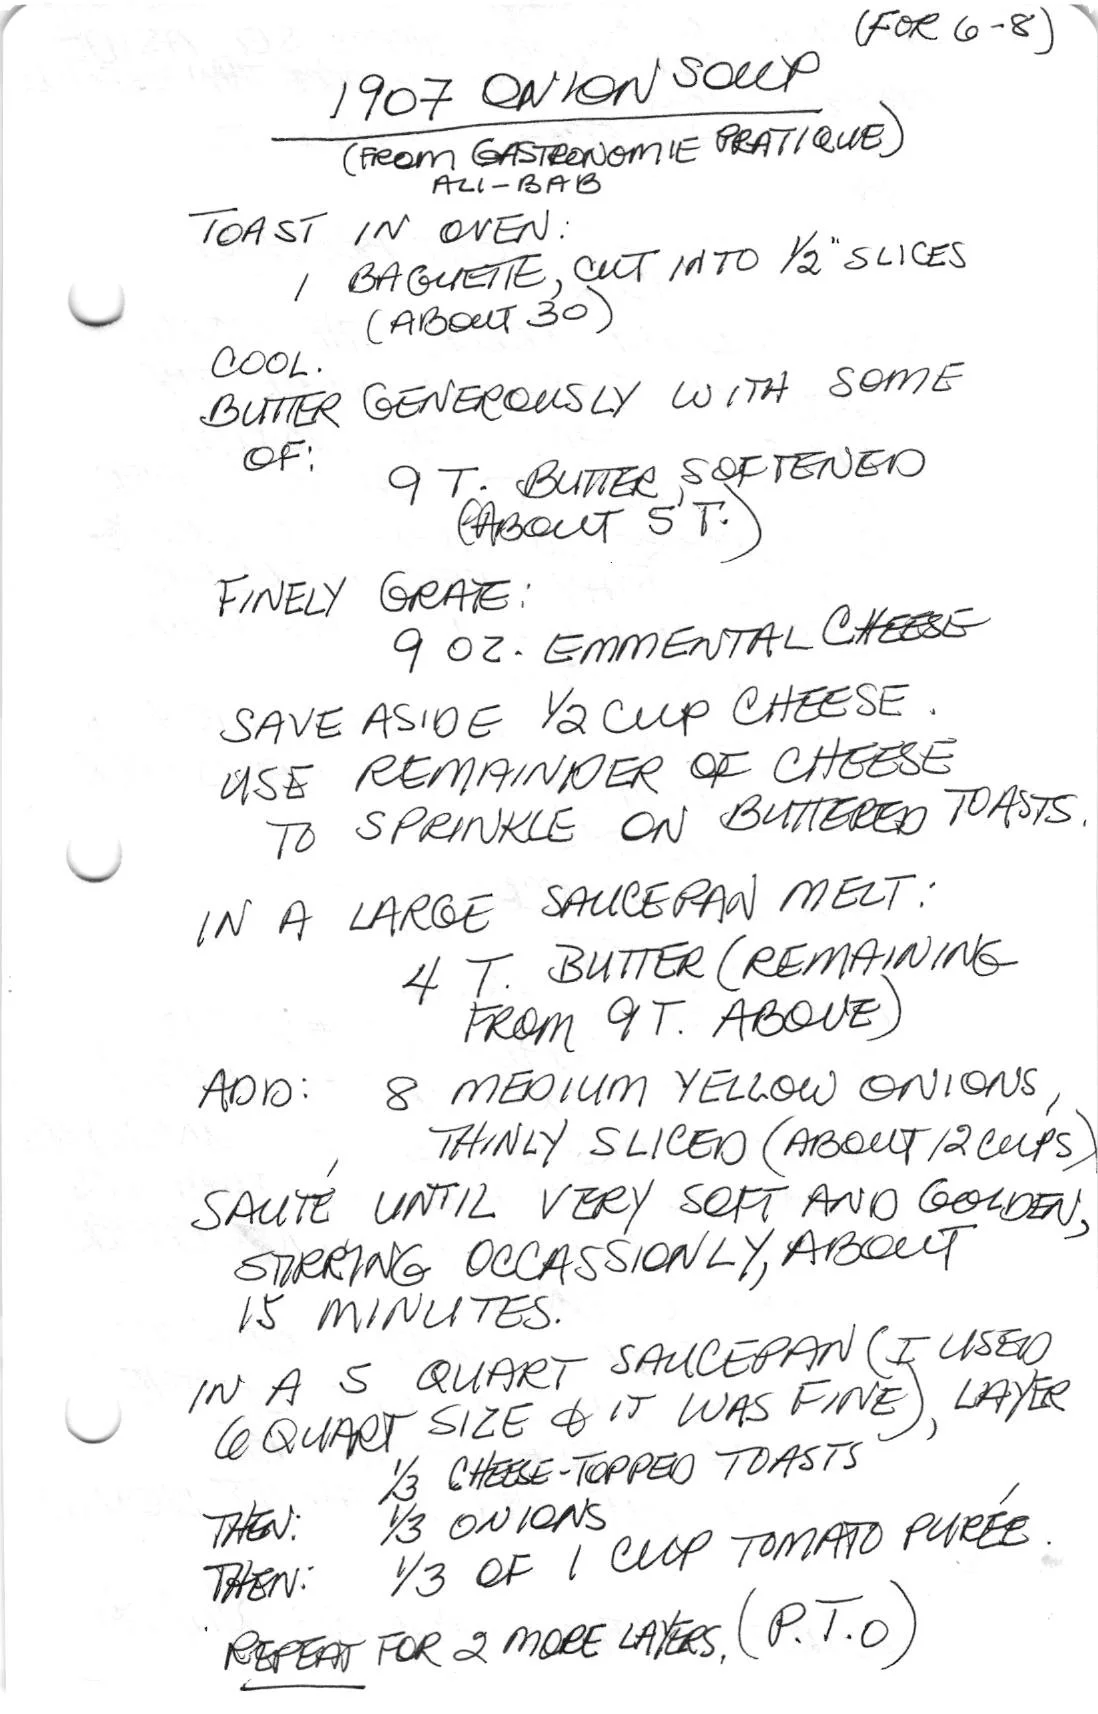 (FOR 6-8)
1907 ONION SOUP
(FROM GASTRONOMIE PRATIQUE)
ALI-BAB
TOAST IN OVEN:
1 BAGUETTE, CUT INTO 1/2" SLICES
(ABOUT 30)
COOL.
BUTTER GENEROUSLY WITH SOME
OF:
9 T. BUTTER, SOFTENED
(ABOUT 5 T.)
FINELY GRATE:
9 OZ. EMMENTAL CHEESE
SAVE ASIDE 1/2 CUP CHEESE.
USE REMAINDER OF CHEESE
TO SPRINKLE ON BUTTERED TOASTS.
IN A LARGE SAUCEPAN MELT:
4 T. BUTTER (REMAINING
FROM 9 T. ABOVE)
ADD: 8 MEDIUM YELLOW ONIONS,
THINLY SLICED (ABOUT 12 CUPS)
SAUTÉ UNTIL VERY SOFT AND GOLDEN,
STIRRING OCCASSIONLY, ABOUT
15 MINUTES.
IN A 5 QUART SAUCEPAN (I USED
6 QUART SIZE & IT WAS FINE), LAYER
1/3 CHEESE-TOPPED TOASTS
THEN: 1/3 ONIONS
THEN: 1/3 OF 1 CUP TOMATO PURÉE.
REPEAT FOR 2 MORE LAYERS. (P.T.O)